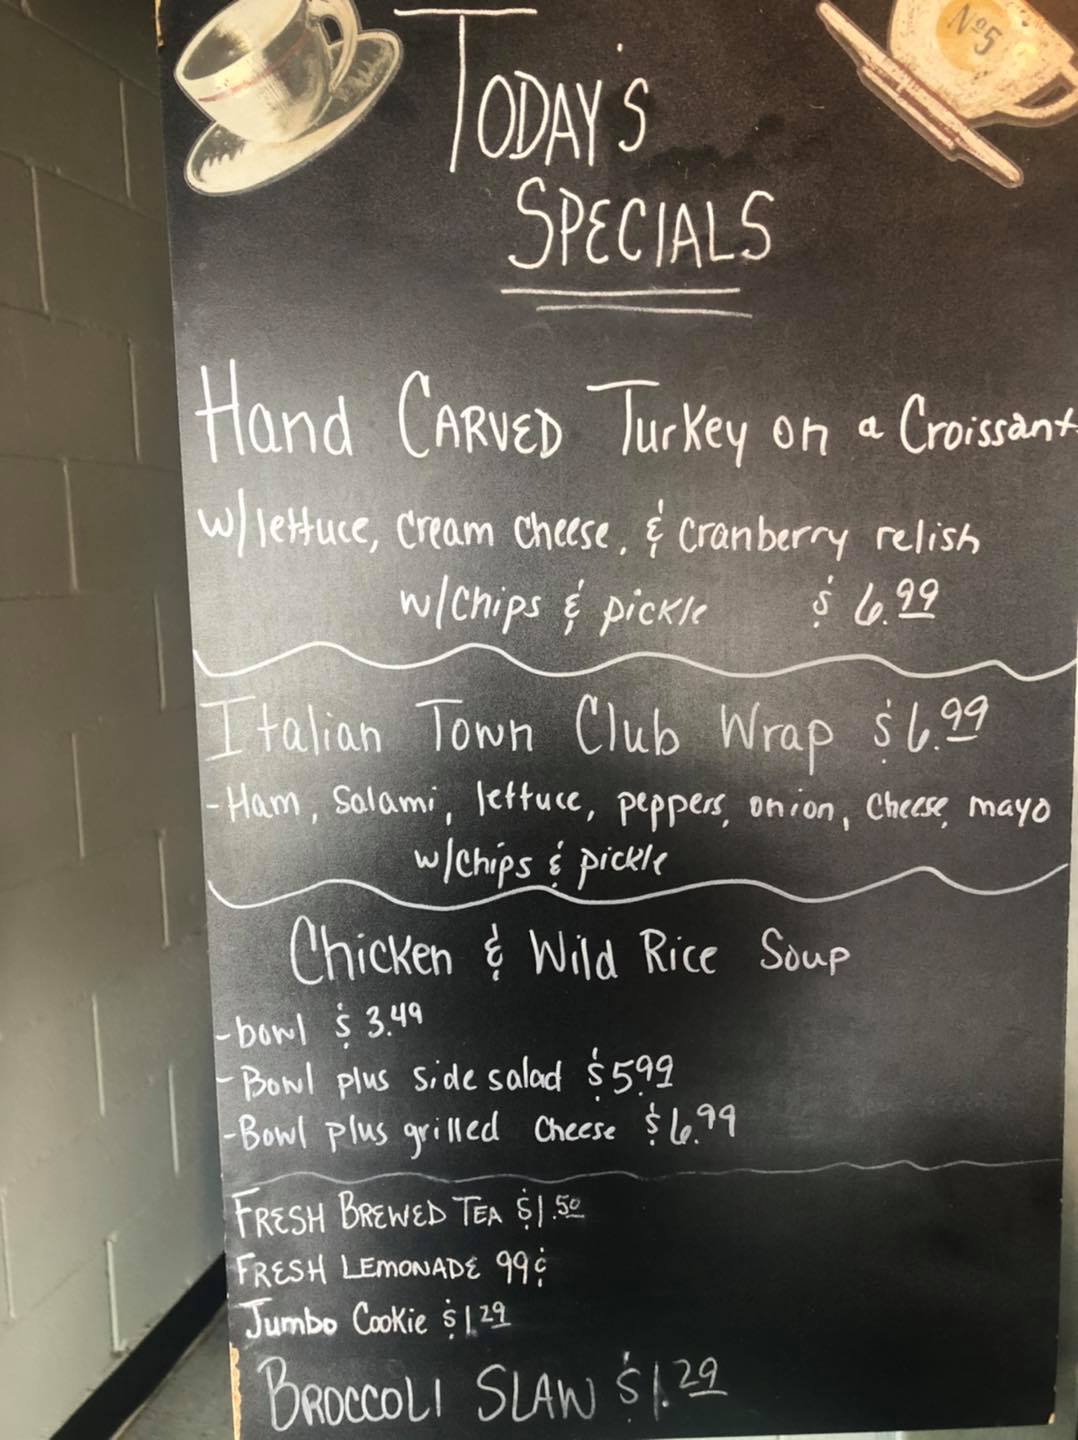 Nº5
TODAY'S
SPECIALS
Hand CARVED Turkey on a Croissant
w/lettuce, cream cheese, & cranberry relish
w/chips & pickle $6.99
Italian Town Club Wrap $6.99
-Ham, Salami, lettuce, peppers, onion, cheese, mayo
w/chips & pickle
Chicken & Wild Rice Soup
-bowl $3.49
-Bowl plus side salad $5.99
-Bowl plus grilled cheese $6.99
FRESH BREWED TEA $1.50
FRESH LEMONADE 99¢
Jumbo Cookie $1.29
BROCCOLI SLAW $1.29